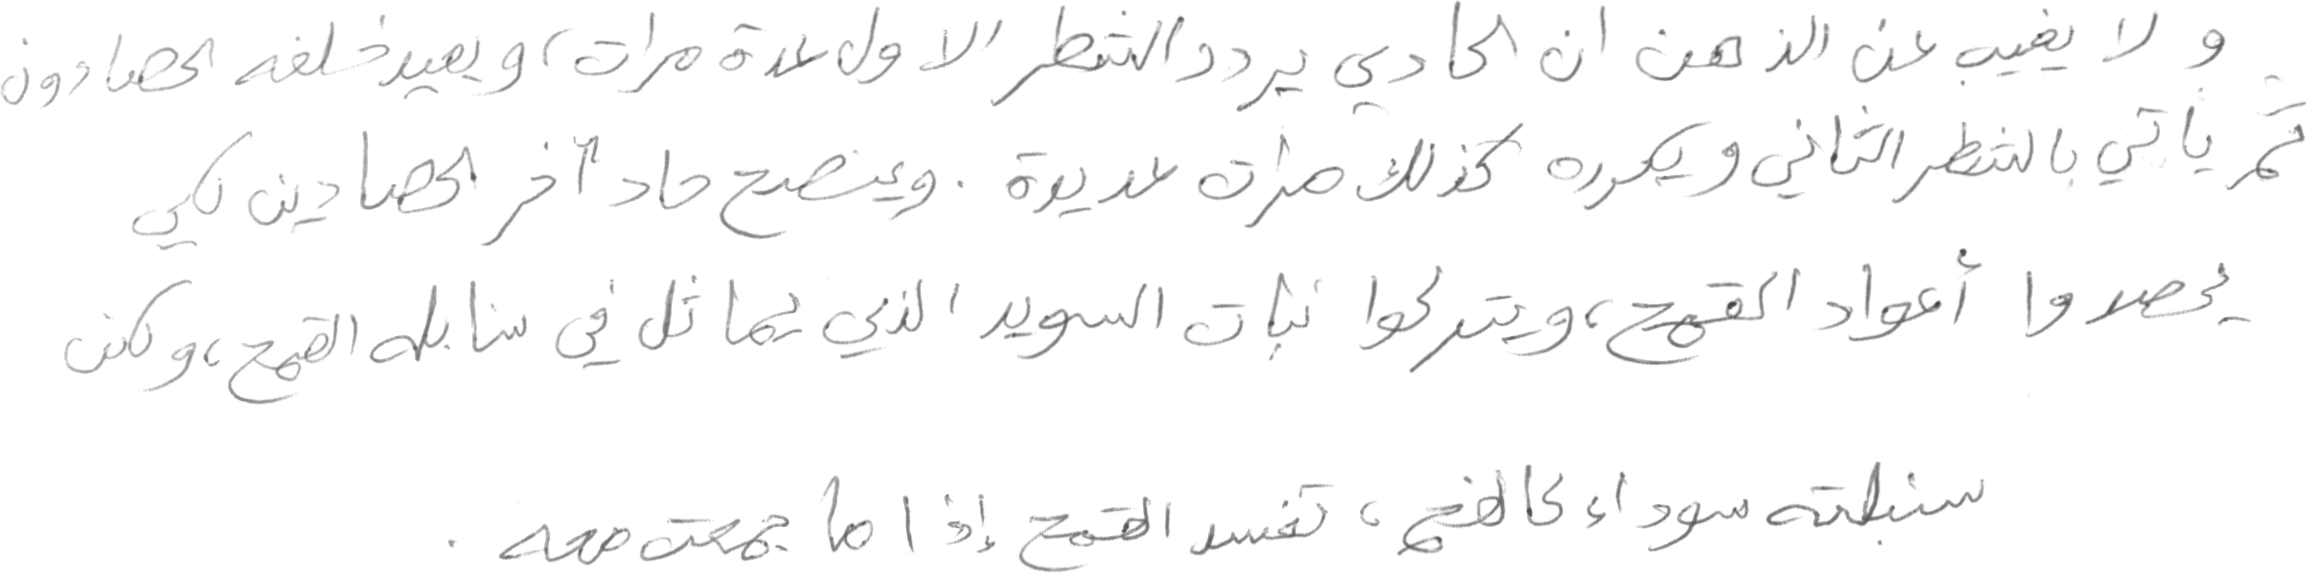 و لا يغيب عن الذهن ان الحادي يردد الشطر الاول عدة مرات، و يعيد خلفه الحصادون
ثم يأتي بالشطر الثاني ويكرره كذلك مرات عديدة . وينصح حاد آخر الحصادين لكي
يحصدوا أعواد القمح، ويتركوا نبات السويد الذي يماثل في سنابله القمح، ولكن
سنبلته سوداء كالفحم، تفسد القمح إذا ما جمعت معه .